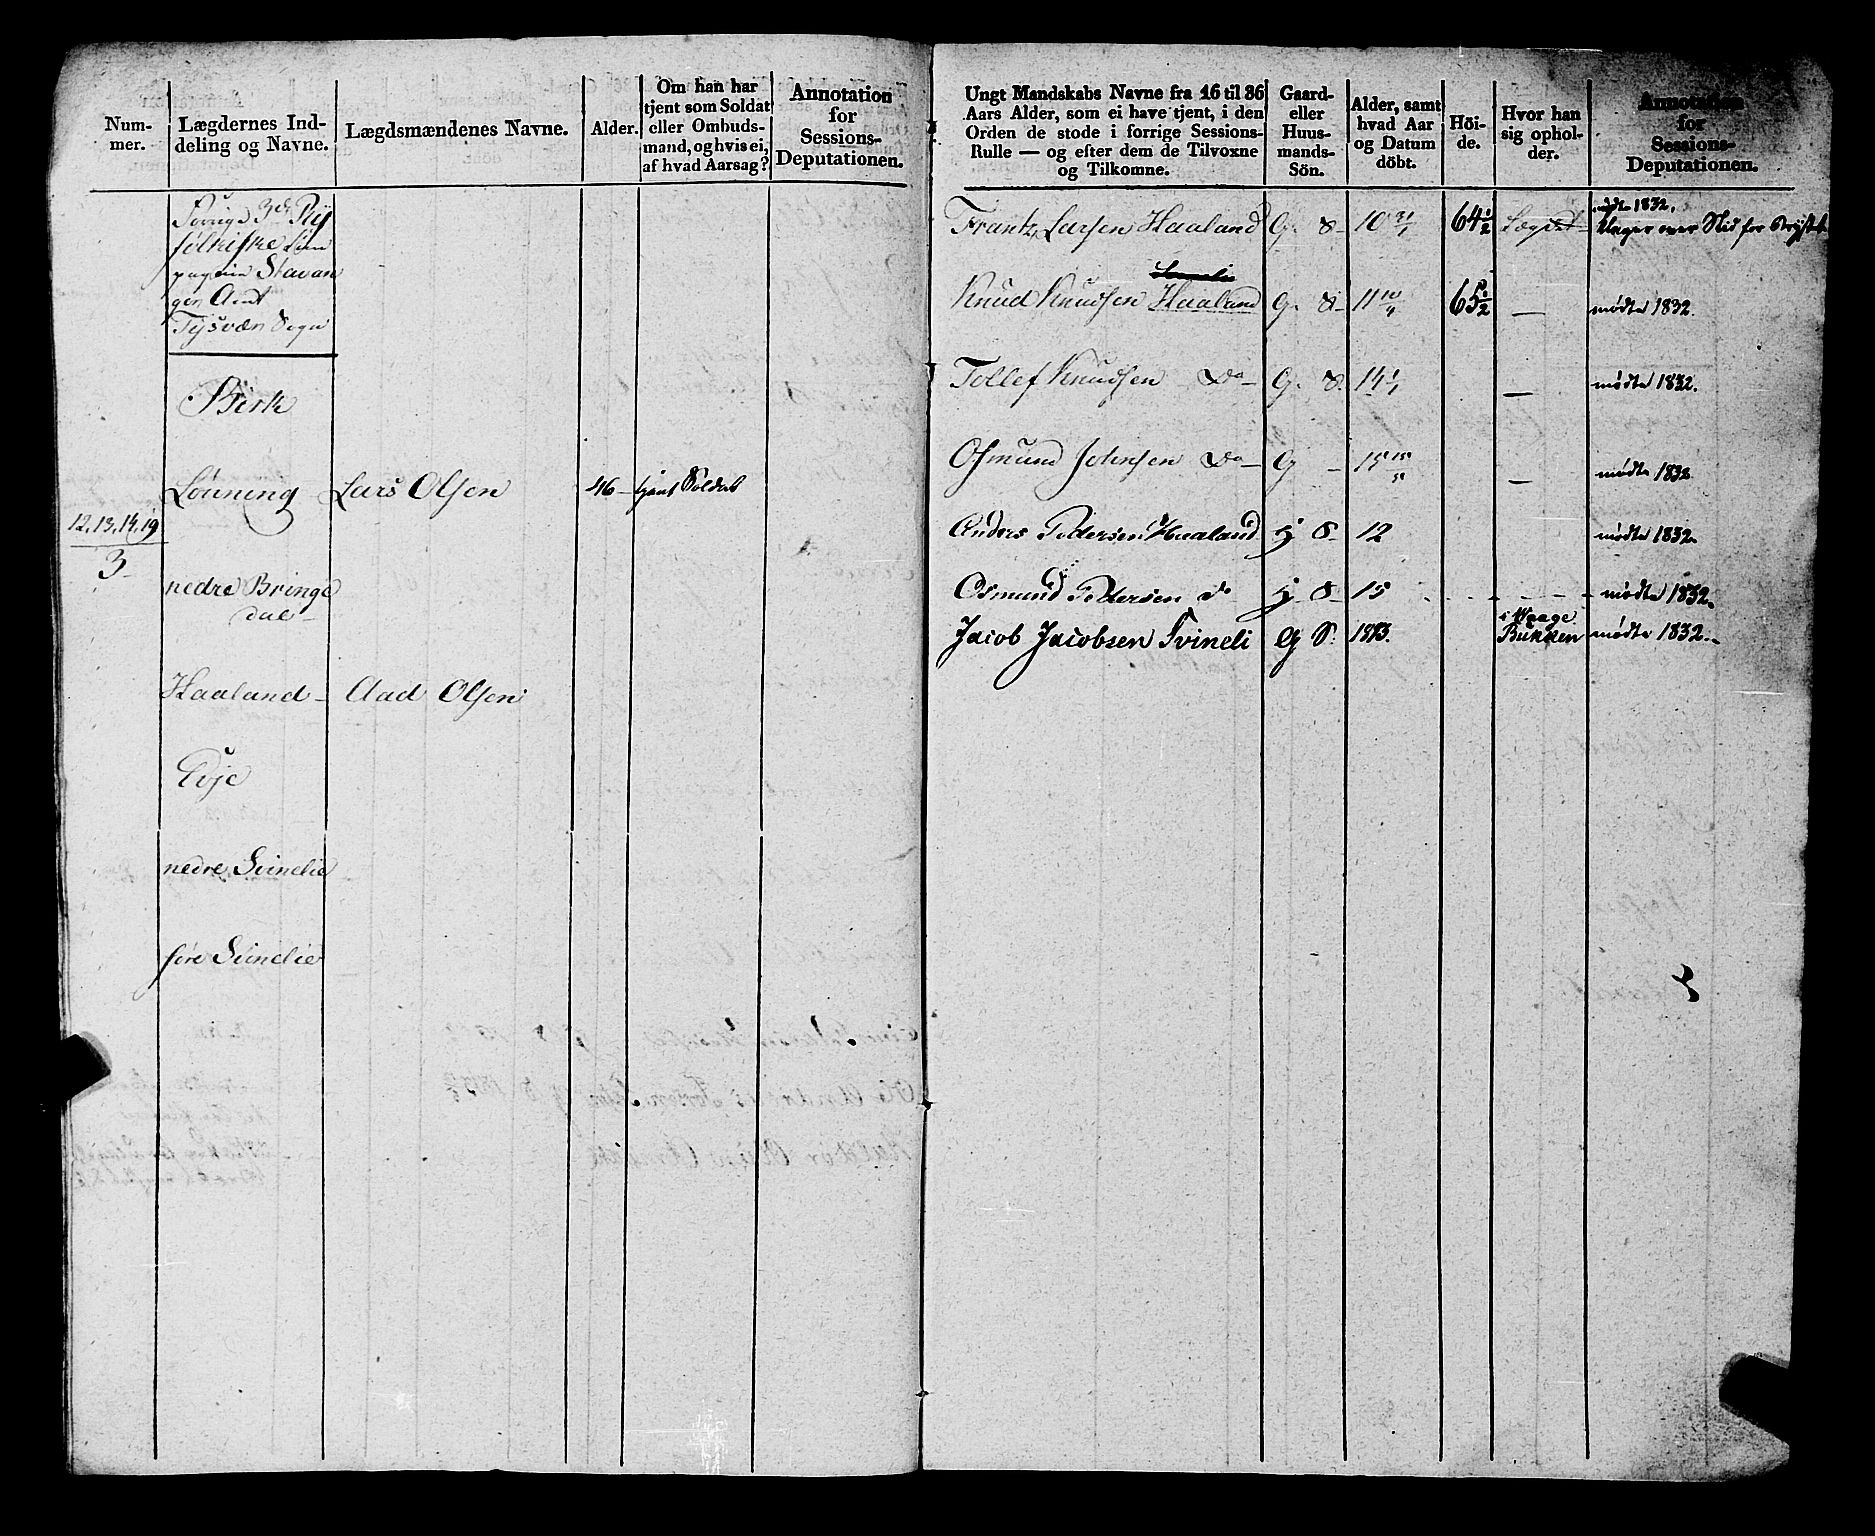 Num-
mer.
Lægdernes Ind-
deling og Navne.
Lægdsmændenes Navne.
Alder.
Om han har
tjent som Soldat
eller Ombuds-
mand, og hvis ei,
af hvad Aarsag?
Annotation
for
Sessions-
Deputationen.
Forrige 3de Ry
fölkiske Com
pagnie Stavan
ger Amt
Tysvær Sogn
Birk
Löuning Lars Olsen 46 - tjent Soldat
12.13.14.19
3
nedre Bringe
dal
Haaland - Aad Olsen
Evje
nedre Svinelie
öure Svinelie
Ungt Mandskabs Navne fra 16 til 36
Aars Alder, som ei have tjent, i den
Orden de stode i forrige Sessions-
Rulle — og efter dem de Tilvoxne
og Tilkomne.
Gaard-
eller
Huus-
mands-
Sön.
Alder, samt
hvad Aar
og Datum
döbt.
Höi-
de.
Hvor han
sig ophol-
der.
Annotation
for
Sessions-
Deputationen.
mødte 1832.
Frantz Larsen Haaland G. S- 10 31/1 64½ Lægdet klager over Slid for Brystet
Knud Knudsen Haaland G. S- 11 10/4 65½ — mødte 1832.
Tollef Knudsen Do- G. S. 14 1/1 — mødte 1832.
Osmund Johnsen Do- G - 15 15/5 — mødte 1832
Anders Pedersen Haaland H S- 12 mødte 1832.
Osmund Pedersen do H S- 15 - - - - mødte 1832.
i Waage
Jacob Jacobsen Svineli G S. 1813. Bukken mødte 1832.